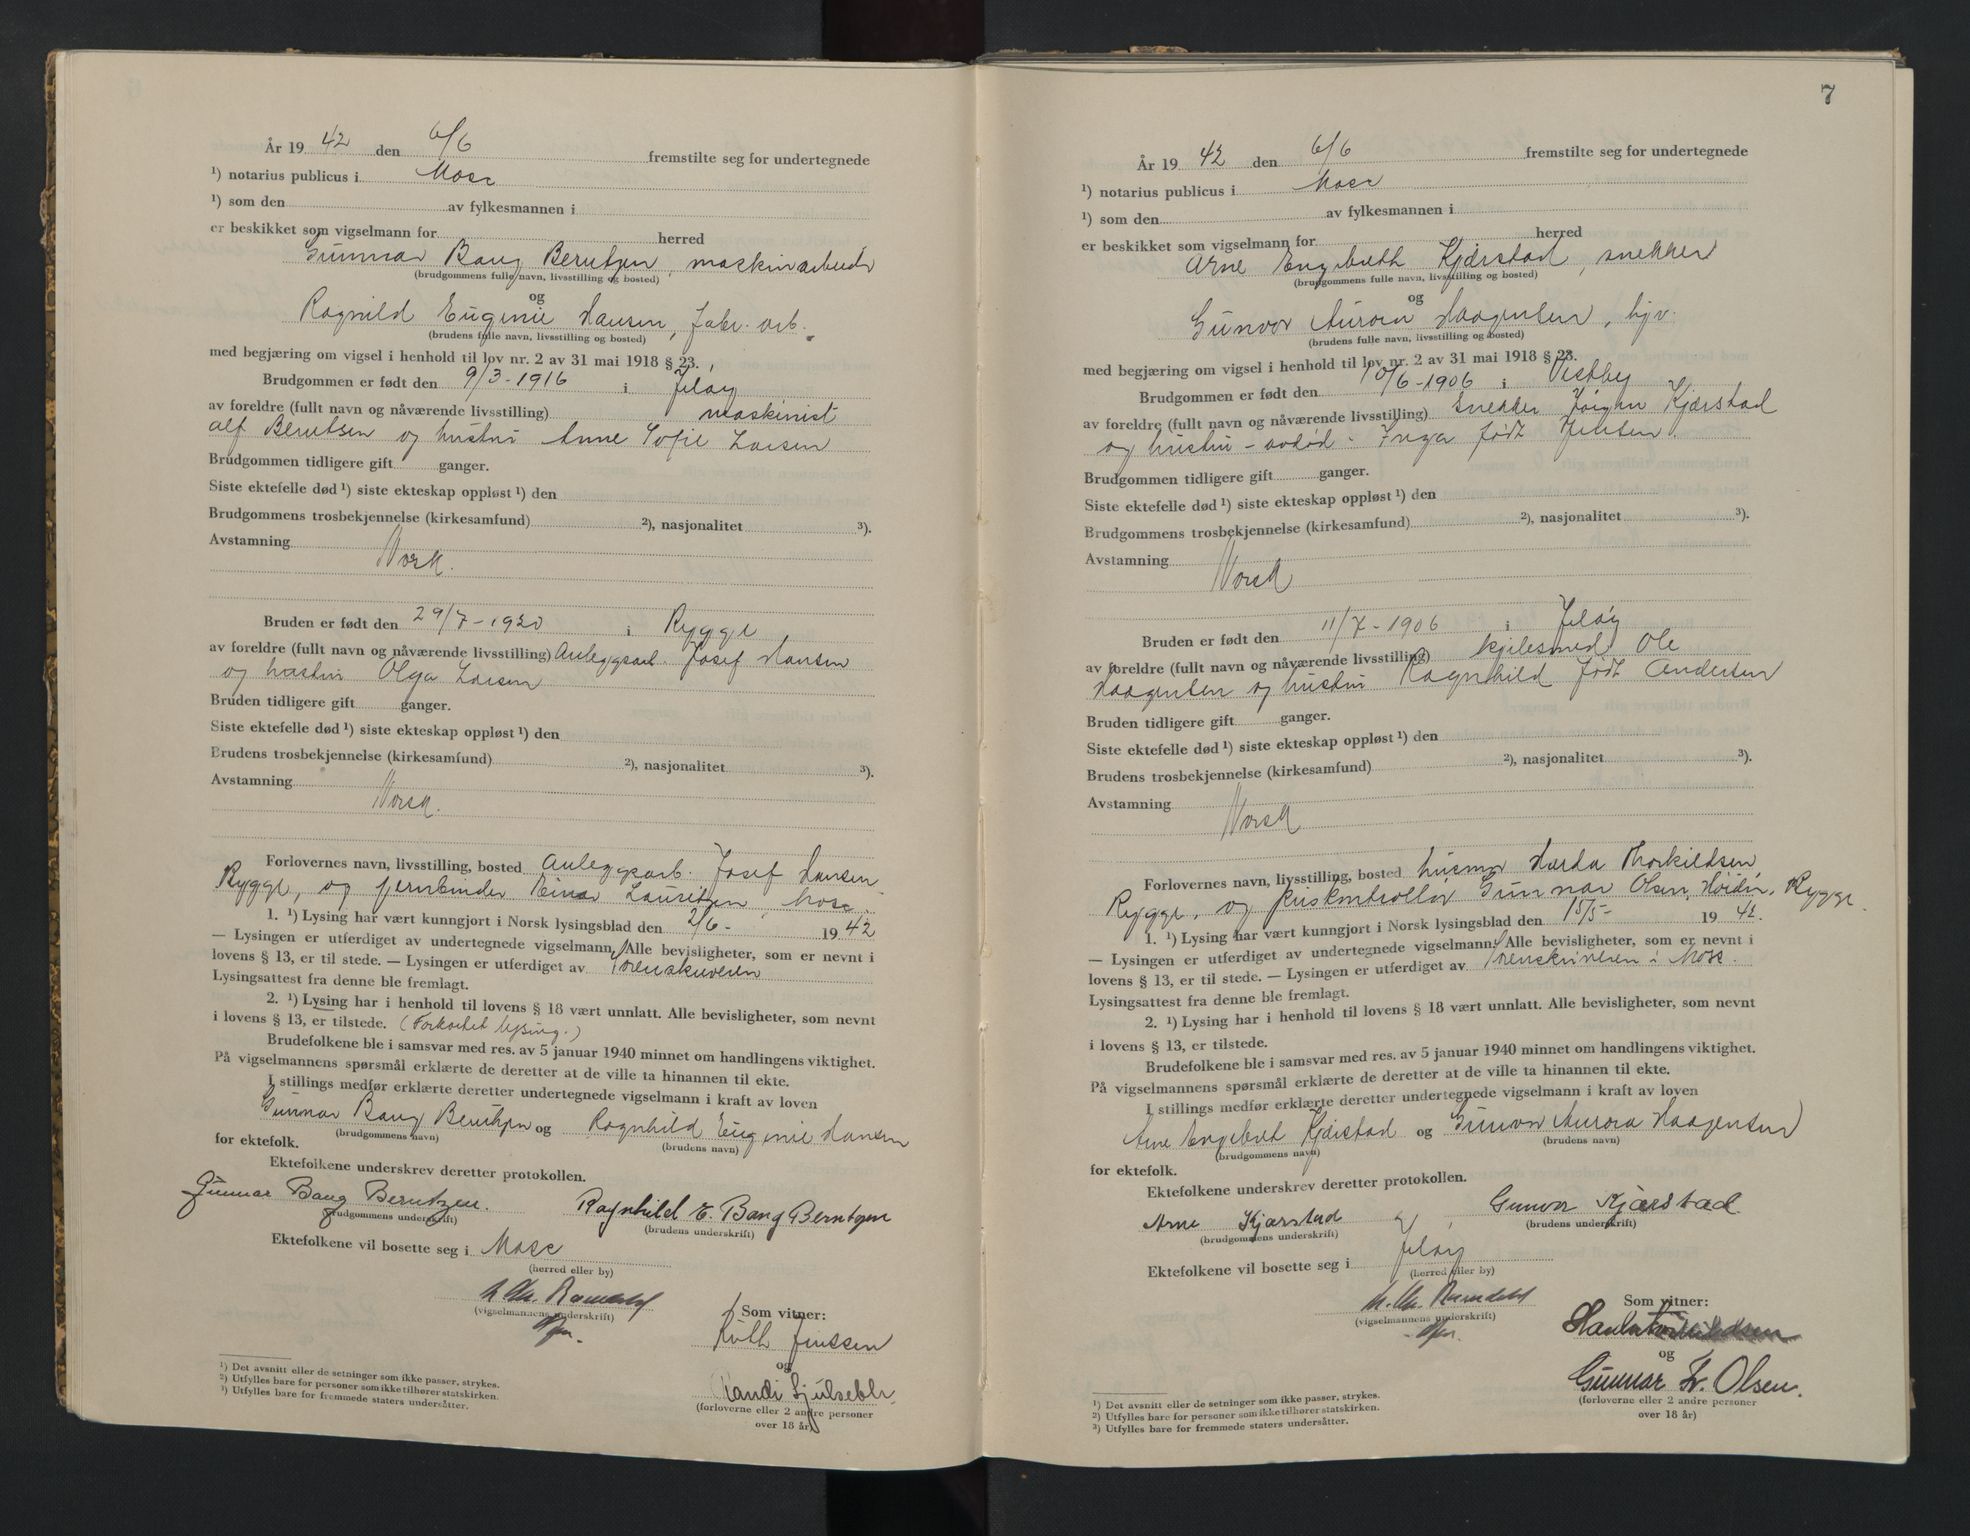 År 19 42 den 6/6 fremstilte seg for undertegnede
¹) notarius publicus i Moss
¹) som den av fylkesmannen i
er beskikket som vigselmann for herred
Gunnar Bang Berntzen, maskinarbeider
(brudgommens fulle navn, livsstilling og bosted)
og
Ragnild Eugenie Hansen, fabr. arb.
(brudens fulle navn, livsstilling og bosted)
med begjæring om vigsel i henhold til lov nr. 2 av 31 mai 1918 § 23.
Brudgommen er født den 9/3-1916 i Jeløy
av foreldre (fullt navn og nåværende livsstilling) maskinist
Alf Berntsen og hustru Anne Sofie Larsen
Brudgommen tidligere gift ganger.
Siste ektefelle død ¹) siste ekteskap oppløst ¹) den
Brudgommens trosbekjennelse (kirkesamfund) ²), nasjonalitet ³).
Avstamning
Norsk.
Bruden er født den 29/7-1920 i Rygge
av foreldre (fullt navn og nåværende livsstilling) Anleggsarb. Josef Hansen
og hustru Olga Larsen
Bruden tidligere gift ganger.
Siste ektefelle død ¹) siste ekteskap oppløst ¹) den
Brudens trosbekjennelse (kirkesamfund) ²), nasjonalitet ³).
Avstamning
Norsk.
Forlovernes navn, livsstilling, bosted Anleggsarb. Josef Hansen
Rygge, og jernbinder Einar Lauritzen, Moss.
1. ¹) Lysing har vært kunngjort i Norsk lysingsblad den 2/6- 19 42
— Lysingen er utferdiget av undertegnede vigselmann. Alle bevisligheter, som er nevnt i
lovens § 13, er til stede. — Lysingen er utferdiget av Sorenskriveren
Lysingsattest fra denne ble fremlagt.
2. ¹) Lysing har i henhold til lovens § 18 vært unnlatt. Alle bevisligheter, som nevnt
i lovens § 13, er tilstede. (Forkortet lysing.)
Brudefolkene ble i samsvar med res. av 5 januar 1940 minnet om handlingens viktighet.
På vigselmannens spørsmål erklærte de deretter at de ville ta hinannen til ekte.
I stillings medfør erklærte deretter undertegnede vigselmann i kraft av loven
Gunnar Bang Berntzen og Ragnhild Eugenie Hansen
(brudgommens navn) (brudens navn)
for ektefolk.
Ektefolkene underskrev deretter protokollen.
Gunnar Bang Berntzen. Ragnhild E. Bang Berntzen
(brudgommens underskrift) (brudens underskrift)
Ektefolkene vil bosette seg i Moss
(herred eller by)
(vigselmannens underskrift)
Som vitner:
Ruth Jenssen
og
Randi
(forloverne eller 2 andre personer
over 18 år)
¹) Det avsnitt eller de setninger som ikke passer, strykes.
²) Utfylles bare for personer som ikke tilhører statskirken.
³) Utfylles bare for fremmede staters undersåtter.
7
År 19 42 den 6/6 fremstilte seg for undertegnede
¹) notarius publicus i Moss
¹) som den av fylkesmannen i
er beskikket som vigselmann for herred
Arne Engebreth Kjærstad, snekker
(brudgommens fulle navn, livsstilling og bosted)
og
Gunvor Aurora Haagensen, hjv.
(brudens fulle navn, livsstilling og bosted)
med begjæring om vigsel i henhold til lov nr. 2 av 31 mai 1918 § 23.
Brudgommen er født den 10/6-1906 i Vestby
av foreldre (fullt navn og nåværende livsstilling) snekker Jørgen Kjærstad
og hustru - avdød - Inga født Jensen.
Brudgommen tidligere gift ganger.
Siste ektefelle død ¹) siste ekteskap oppløst ¹) den
Brudgommens trosbekjennelse (kirkesamfund) ²), nasjonalitet ³).
Avstamning
Norsk
Bruden er født den 11/7-1906 i Jeløy
av foreldre (fullt navn og nåværende livsstilling) kjelesmed Ole
Haagensen og hustru Ragnhild født Andersen
Bruden tidligere gift ganger.
Siste ektefelle død ¹) siste ekteskap oppløst ¹) den
Brudens trosbekjennelse (kirkesamfund) ²), nasjonalitet ³).
Avstamning
Norsk
Forlovernes navn, livsstilling, bosted husmor Harda Thorkildsen
Rygge, og priskontrollør Gunnar Olsen, Høiden, Rygge.
1. ¹) Lysing har vært kunngjort i Norsk lysingsblad den 15/5- 19 42.
— Lysingen er utferdiget av undertegnede vigselmann. Alle bevisligheter, som er nevnt i
lovens § 13, er til stede. — Lysingen er utferdiget av Sorenskriveren i Moss.
Lysingsattest fra denne ble fremlagt.
2. ¹) Lysing har i henhold til lovens § 18 vært unnlatt. Alle bevisligheter, som nevnt
i lovens § 13, er tilstede.
Brudefolkene ble i samsvar med res. av 5 januar 1940 minnet om handlingens viktighet.
På vigselmannens spørsmål erklærte de deretter at de ville ta hinannen til ekte.
I stillings medfør erklærte deretter undertegnede vigselmann i kraft av loven
Arne Engebret Kjærstad og Gunvor Aurora Haagensen
(brudgommens navn) (brudens navn)
for ektefolk.
Ektefolkene underskrev deretter protokollen.
Arne Kjærstad og Gunvor Kjærstad.
(brudgommens underskrift) (brudens underskrift)
Ektefolkene vil bosette seg i Jeløy
(herred eller by)
(vigselmannens underskrift)
Som vitner:
og
Gunnar Fr. Olsen.
(forloverne eller 2 andre personer
over 18 år)
¹) Det avsnitt eller de setninger som ikke passer, strykes.
²) Utfylles bare for personer som ikke tilhører statskirken.
³) Utfylles bare for fremmede staters undersåtter.